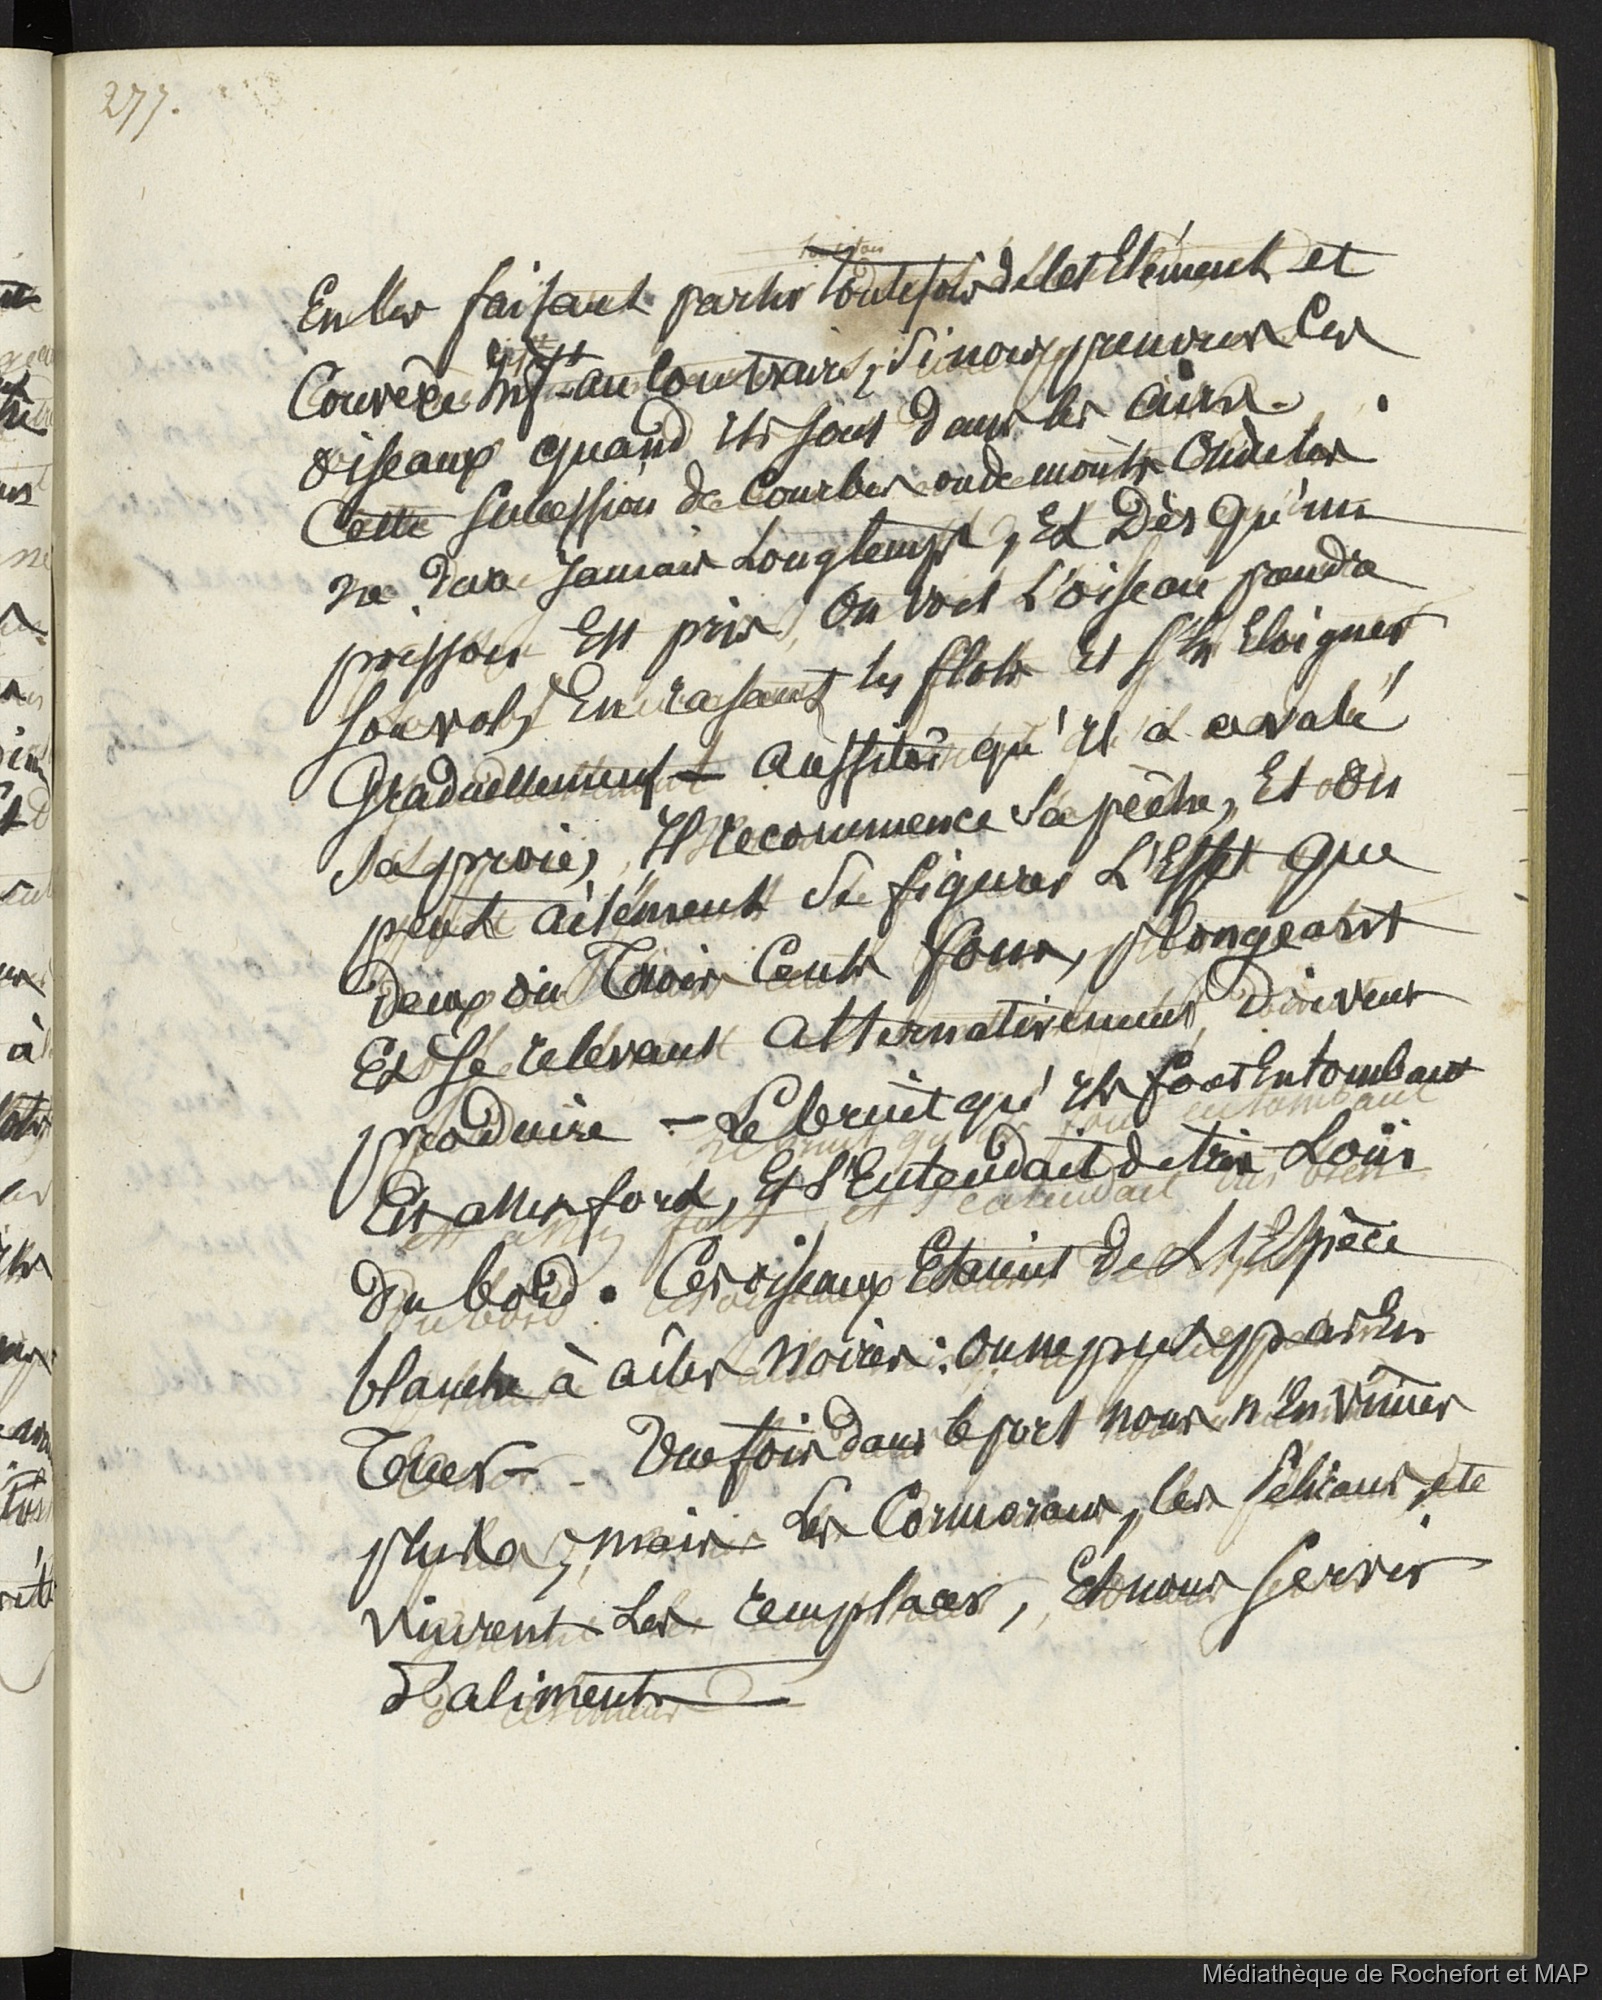 277.
En les faisant partir toutefois de cet Elément et
Convèxe au contraire, si nous prenons les
oiseaux quand ils sont dans les airs.
Cette sucession de Courbes ou de mouts Ondules
ne dure jamais Longtemps, Et Dès qu'un
poisson Est pris, On voit L'oiseau prendre
son vol, En rasant les flots Et s'En Eloigner
Graduellement - aussitôt qu'il a avalé
sa proie, Il recommence sa pêche, Et On
peut aisément se figurer L'Effet que
deux ou Trois Cents fous, plongeant
Et se relevant alternativement, Doivent
produire - Le bruit qu'ils font En tombant
Est assez fort, Et s'Entendait de très Loin
Du bord. Ces oiseaux Etaient de L'Espèce
blanche à aîles noires : on ne put pas En
Tuer - Une fois dans le port nous n'En vîmes
plus, mais Les Cormorans, les Pélicans, etc
vinrent Les remplacer, Et nous servir
d'aliments
Médiathèque de Rochefort et MAP